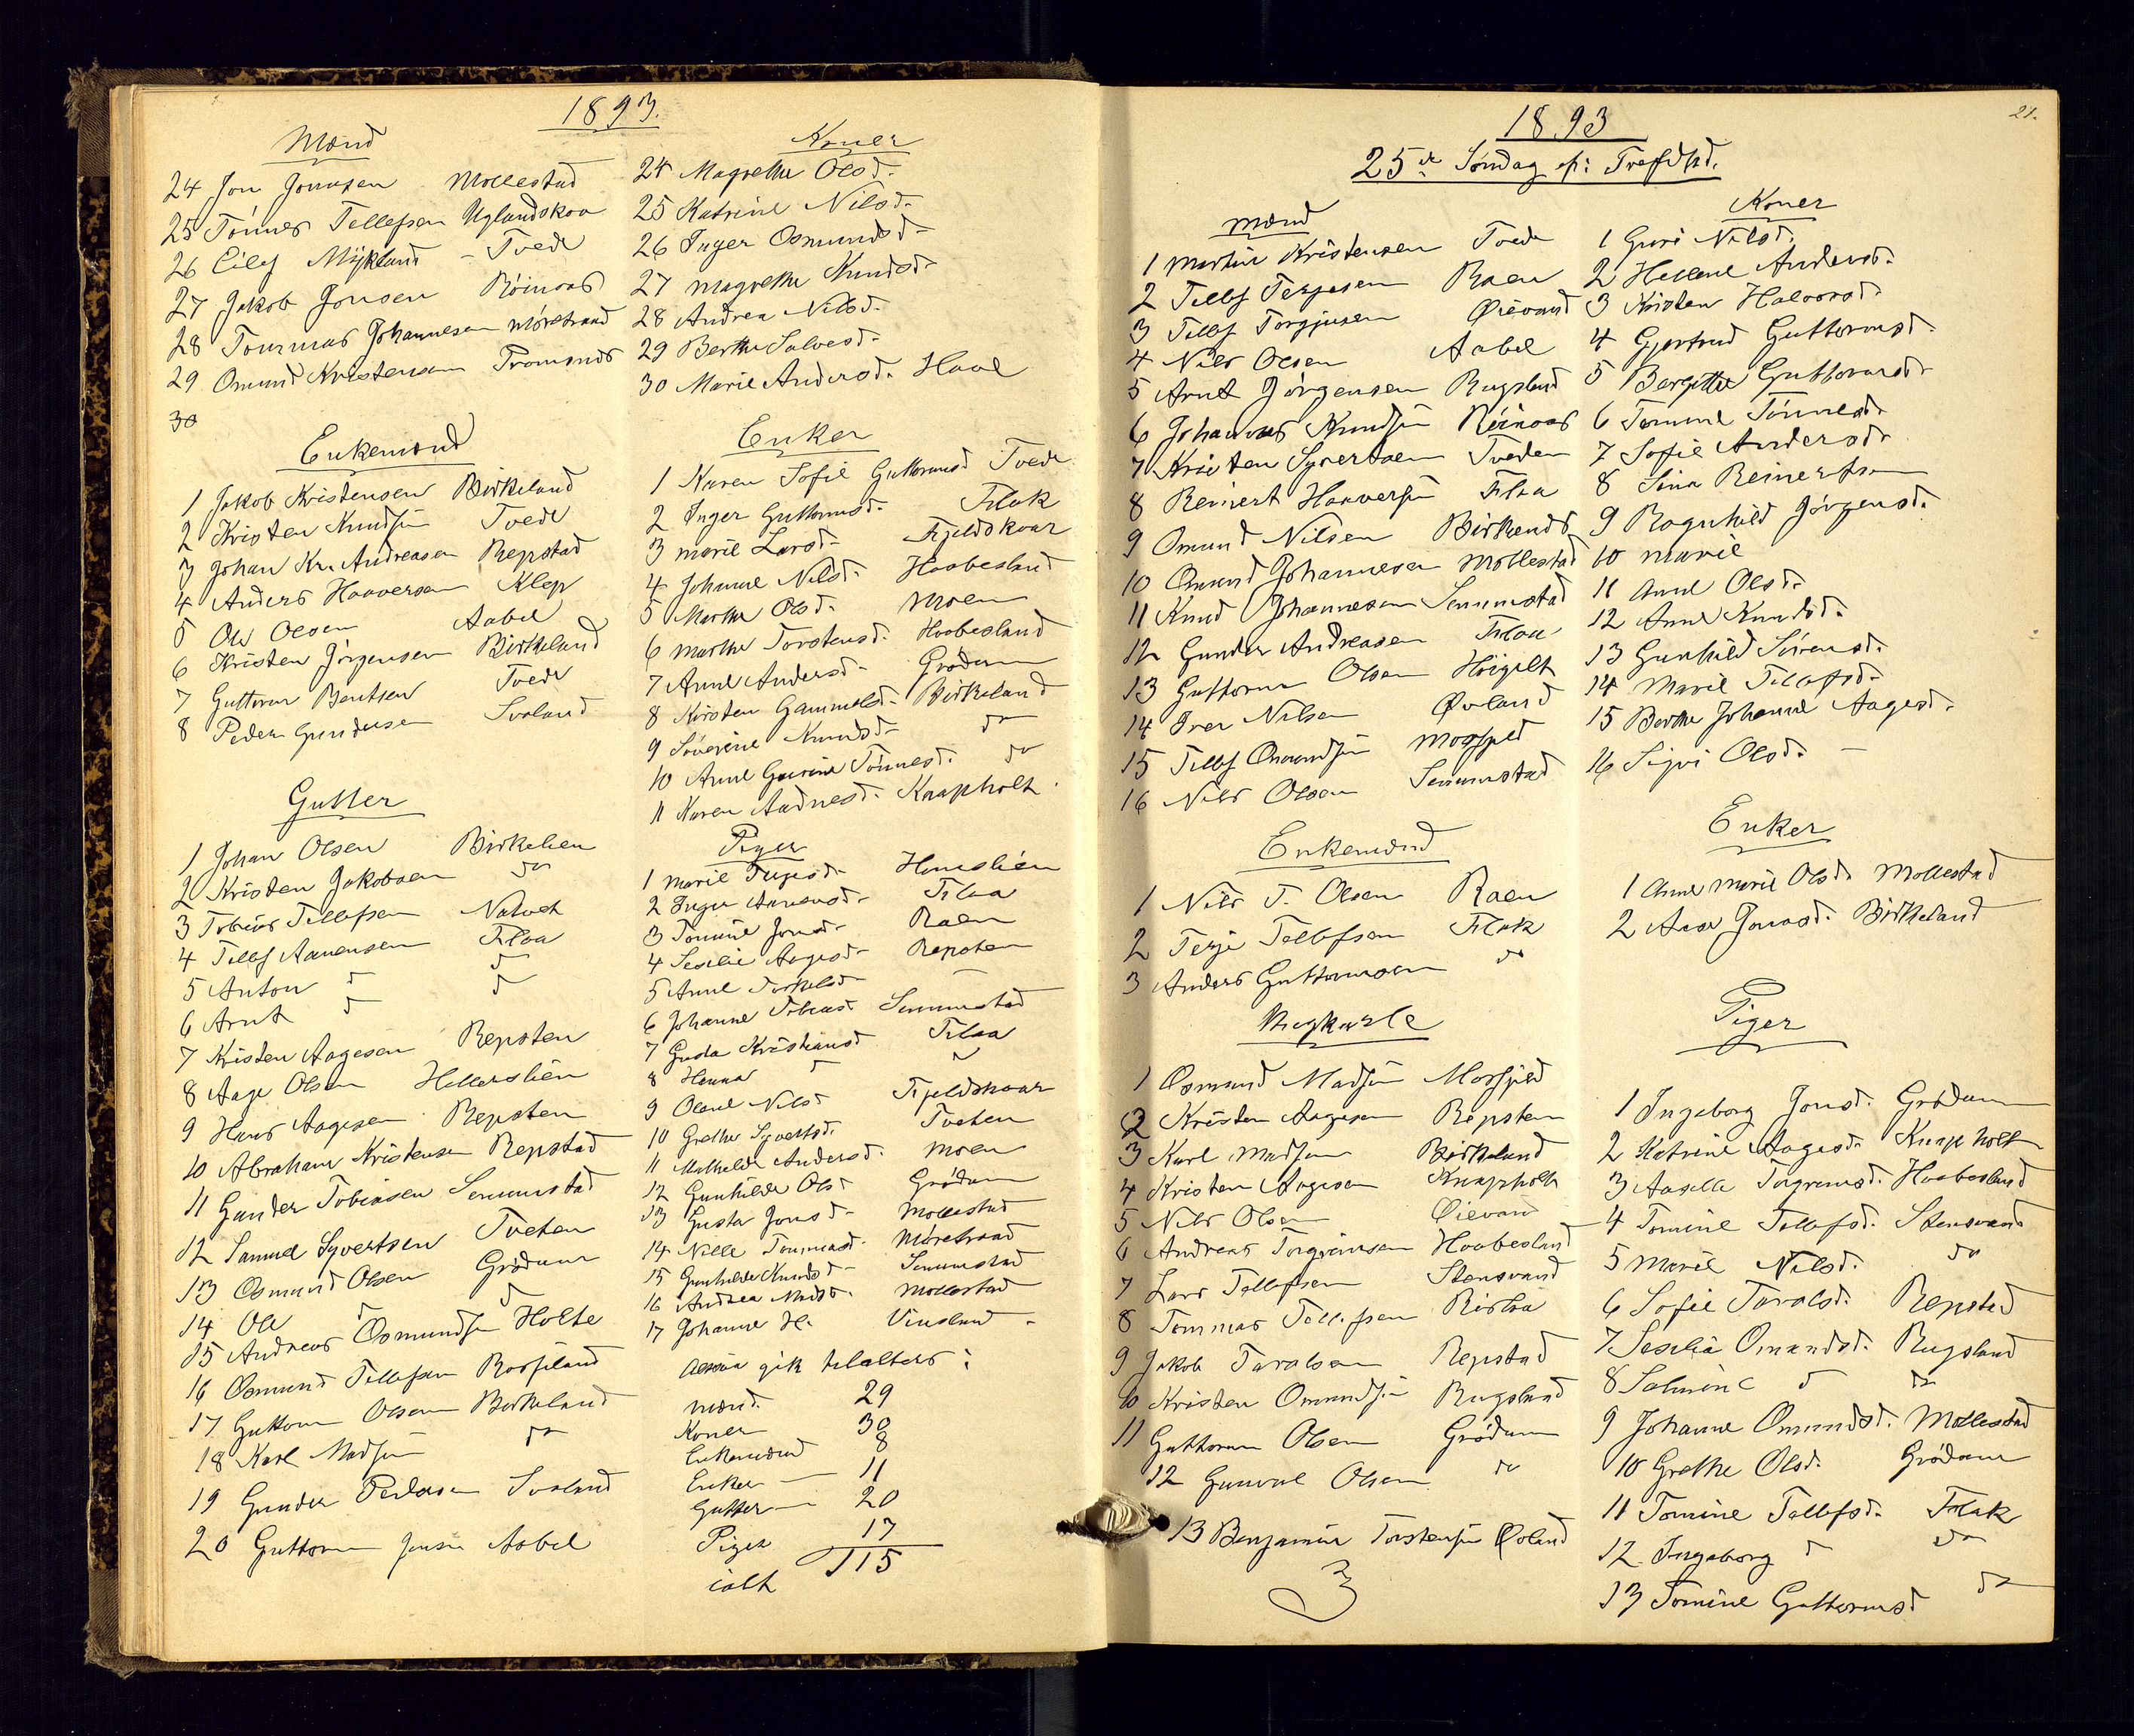 1893.
Mænd
24 Jon Jonassen Mollestad
25 Tönnes Tellefsen Uglandskaa
26 Eilef Mykland - Tvede
27 Jakob Jonsen Röinaas
28 Tommas Johannesen Möretraad
29 Omund Kristensen Tromsnds
30
Koner
24 Magrethe Olsd.
25 Katrine Nilsd.
26 Inger Osmundsd
27 Magrethe Knudsd.
28 Andrea Nilsd.
29 Berthe Salvesd.
30 Marie Andersd. Haal
Enkemænd
1 Jakob Kristensen Birkeland
2 Kristen Knudsen Tvede
3 Johan Kr. Andreasen Repstad
4 Anders Haaversen Klep
5 Ole Olsen Aabel
6 Kristen Jörgensen Birkeland
7 Guttorm Bentsen Tvede
8 Peder Gundersen Svaland
Enker
1 Karen Sofie Guttormsd Tvede
2 Inger Guttormsd. Flak
3 Marie Larsd. Fjeldskaar
4 Johanne Nilsd. Haabesland
5 Marthe Olsd. Moen
6 Marthe Torstensd. Haabesland
7 Anne Andersd. Grödum
8 Kirsten Gammelsd. Birkeland
9 Söverine Knudsd. do
10 Anne Gurine Tönnesd. do
11 Karen Aadnesd. Knapholt.
Gutter
1 Johan Olsen Birkelien
2 Kristen Jakobsen do
3 Tobias Tellefsen Natvet
4 Tellef Aanensen Flaa
5 Anton d d
6 Arnt d d
7 Kristen Aagesen Repsten
8 Aage Olsen Hellerslien
9 Hans Aagesen Repsten
10 Abraham Kristensen Repstad
11 Gunder Tobiasen Senumstad
12 Samuel Syvertsen Tveten
13 Osmund Olsen Grödum
14 Ole d d
15 Andreas Osmundsen Holte
16 Osmund Tellefsen Rosseland
17 Guttorm Olsen Birkeland
18 Karl Madsen do
19 Gunder Pedersen Svaland
20 Guttorm Jensen Aabel
Piger
1 Marie Terjesd. Homslien
2 Inger Aanensd. Flaa
3 Tomine Jonsd. Raen
4 Seselie Aagesd. Repsten
5 Anne Torkelsd
6 Johanne Tobiasd. Senumstad
7 Gusta Kristiansd Flaa
8 Hanna d
9 Olene Nilsd Fjeldskaar
10 Grethe Syvertsd. Tveten
11 Mathilde Andersd. Moen
12 Gunhilde Olsd Grödum
13 Gusta Jonsd. Mollestad
14 Nille Tommasd. Möretraad
15 Gunhilde Knudsd. Senumstad
16 Andrea Madsd. Mollestad
17 Johanne H. Vinsland.
Alssaa gik tilalters:
mænd. 29
Koner 30
Enkemænd 8
Enker 11
Gutter 20
Piger 17
ialt 115
21.
1893
25de Söndag ef: Trefdhd.
Mænd
1 Martin Kristensen Tvede
2 Tellef Terjesen Raen
3 Tellef Torgjusen Øievand
4 Nils Olsen Aabel
5 Arnt Jörgensen Rugsland
6 Johannes Knudsen Röinaas
7 Kristen Syvertsen Tveden
8 Reinert Haaversen Flaa
9 Omund Nilsen Birkends
10 Omund Johannesen Mollestad
11 Knud Johannesen Senumstad
12 Gunder Andreasen Flaa
13 Guttorm Olsen Höigilt
14 Iver Nilsen Øvland
15 Tellef Omundsen Mosfjeld
16 Nils Olsen Senumstad
Koner
1 Guri Nilsd.
2 Hellene Andersd.
3 Kristen Halvorsd.
4 Gjertrud Guttormsd.
5 Bergitte Guttormsd.
6 Tomine Tönnesd.
7 Sofie Andersd.
8 Sina Reinertsen
9 Ragnhild Jörgensd.
10 Marie
11 Anne Olsd.
12 Anne Knudsd.
13 Gunhild Sörensd.
14 Marie Tellefsd.
15 Berthe Johanne Aagesd.
16 Sigri Olsd. —
Enkemænd
1 Nils T. Olsen Raen
2 Terje Tellefsen Flak
3 Anders Guttormsen do
Enker
1 Anne Marie Olsd. Mollestad
2 Aase Jonasd. Birkeland
Ungkarle
1 Osmund Madsen Mosfjeld
2 Kristen Aagesen Repsten
3 Karl Madsen Birkeland
4 Kristen Aagesen Knapholt
5 Nils Olsen Øievand
6 Andreas Torgrimsen Haabesland
7 Lars Tellefsen Stensvand
8 Tommas Tellefsen Rislaa
9 Jakob Taralsen Repstad
10 Kristen Omundsen Rugsland
11 Guttorm Olsen Grödum
12 Gunvald Olsen do
13 Benjamin Torstensen Øvland
Piger
1 Ingeborg Jonsd. Grödum
2 Katrine Aagesd. Knapholt
3 Aasille Torgrimsd. Haabesland
4 Tomine Tellefsd. Stensvand
5 Marie Nilsd. do
6 Sofie Taralsd. Repstad
7 Seselia Omundsd. Rugsland
8 Salmine d do
9 Johanne Omundsd. Mollestad
10 Grethe Olsd. Grödum
11 Tomine Tellefsd. Flak
12 Ingeborg d do
13 Tomine Guttormsd do